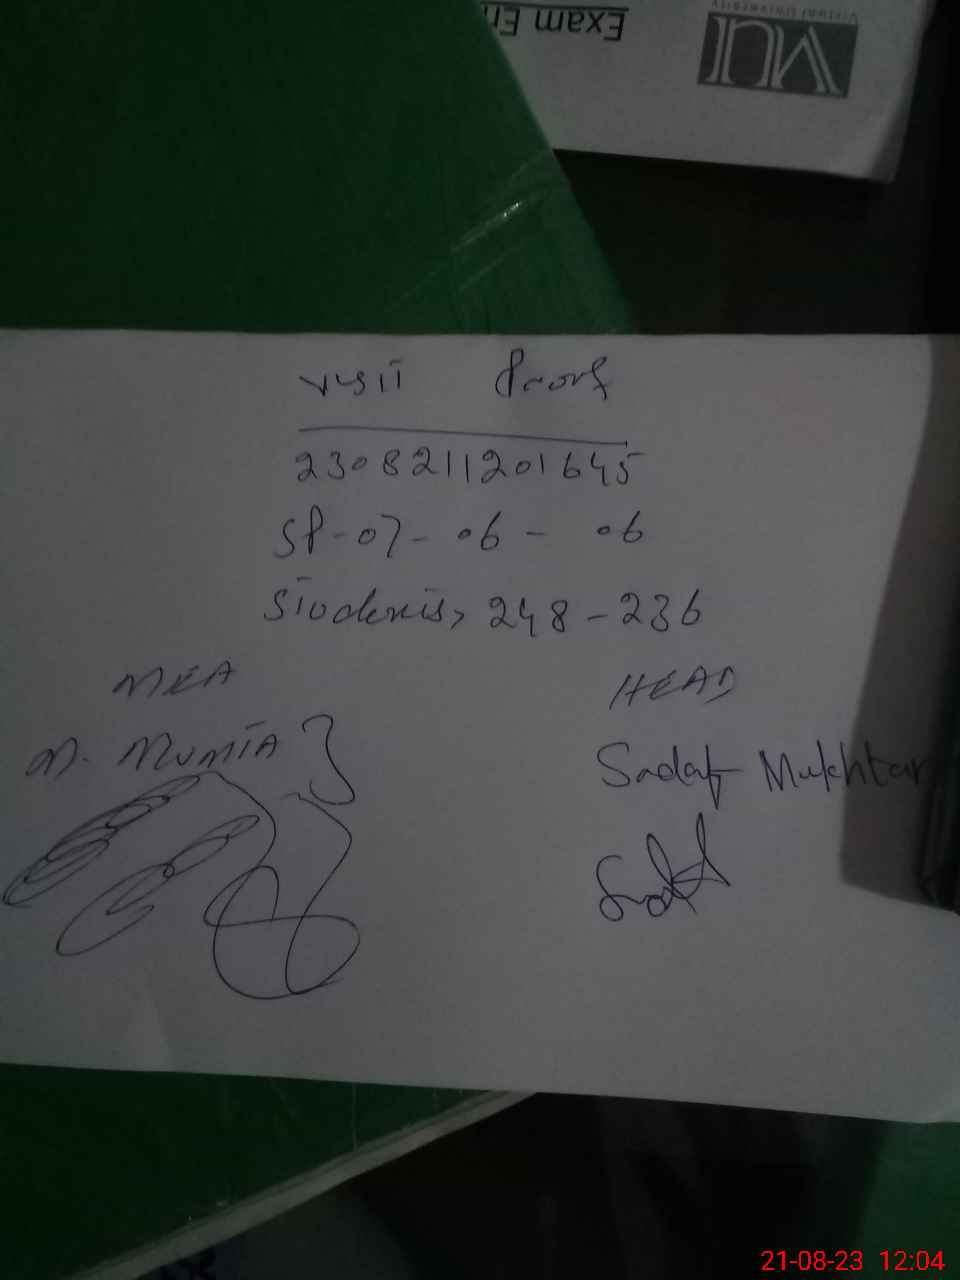 VUI
Virtual University
Exam En
Visit Proof
230821120 1645
SP-07-06-06
Students, 248-236
MEA
HEAD
M. Mumta
Sadaf Mukhtar
21-08-23 12:04